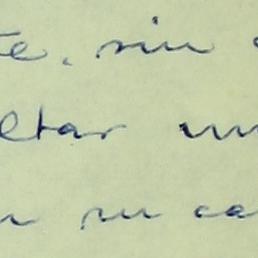 te, sin
ltar un
n su ca